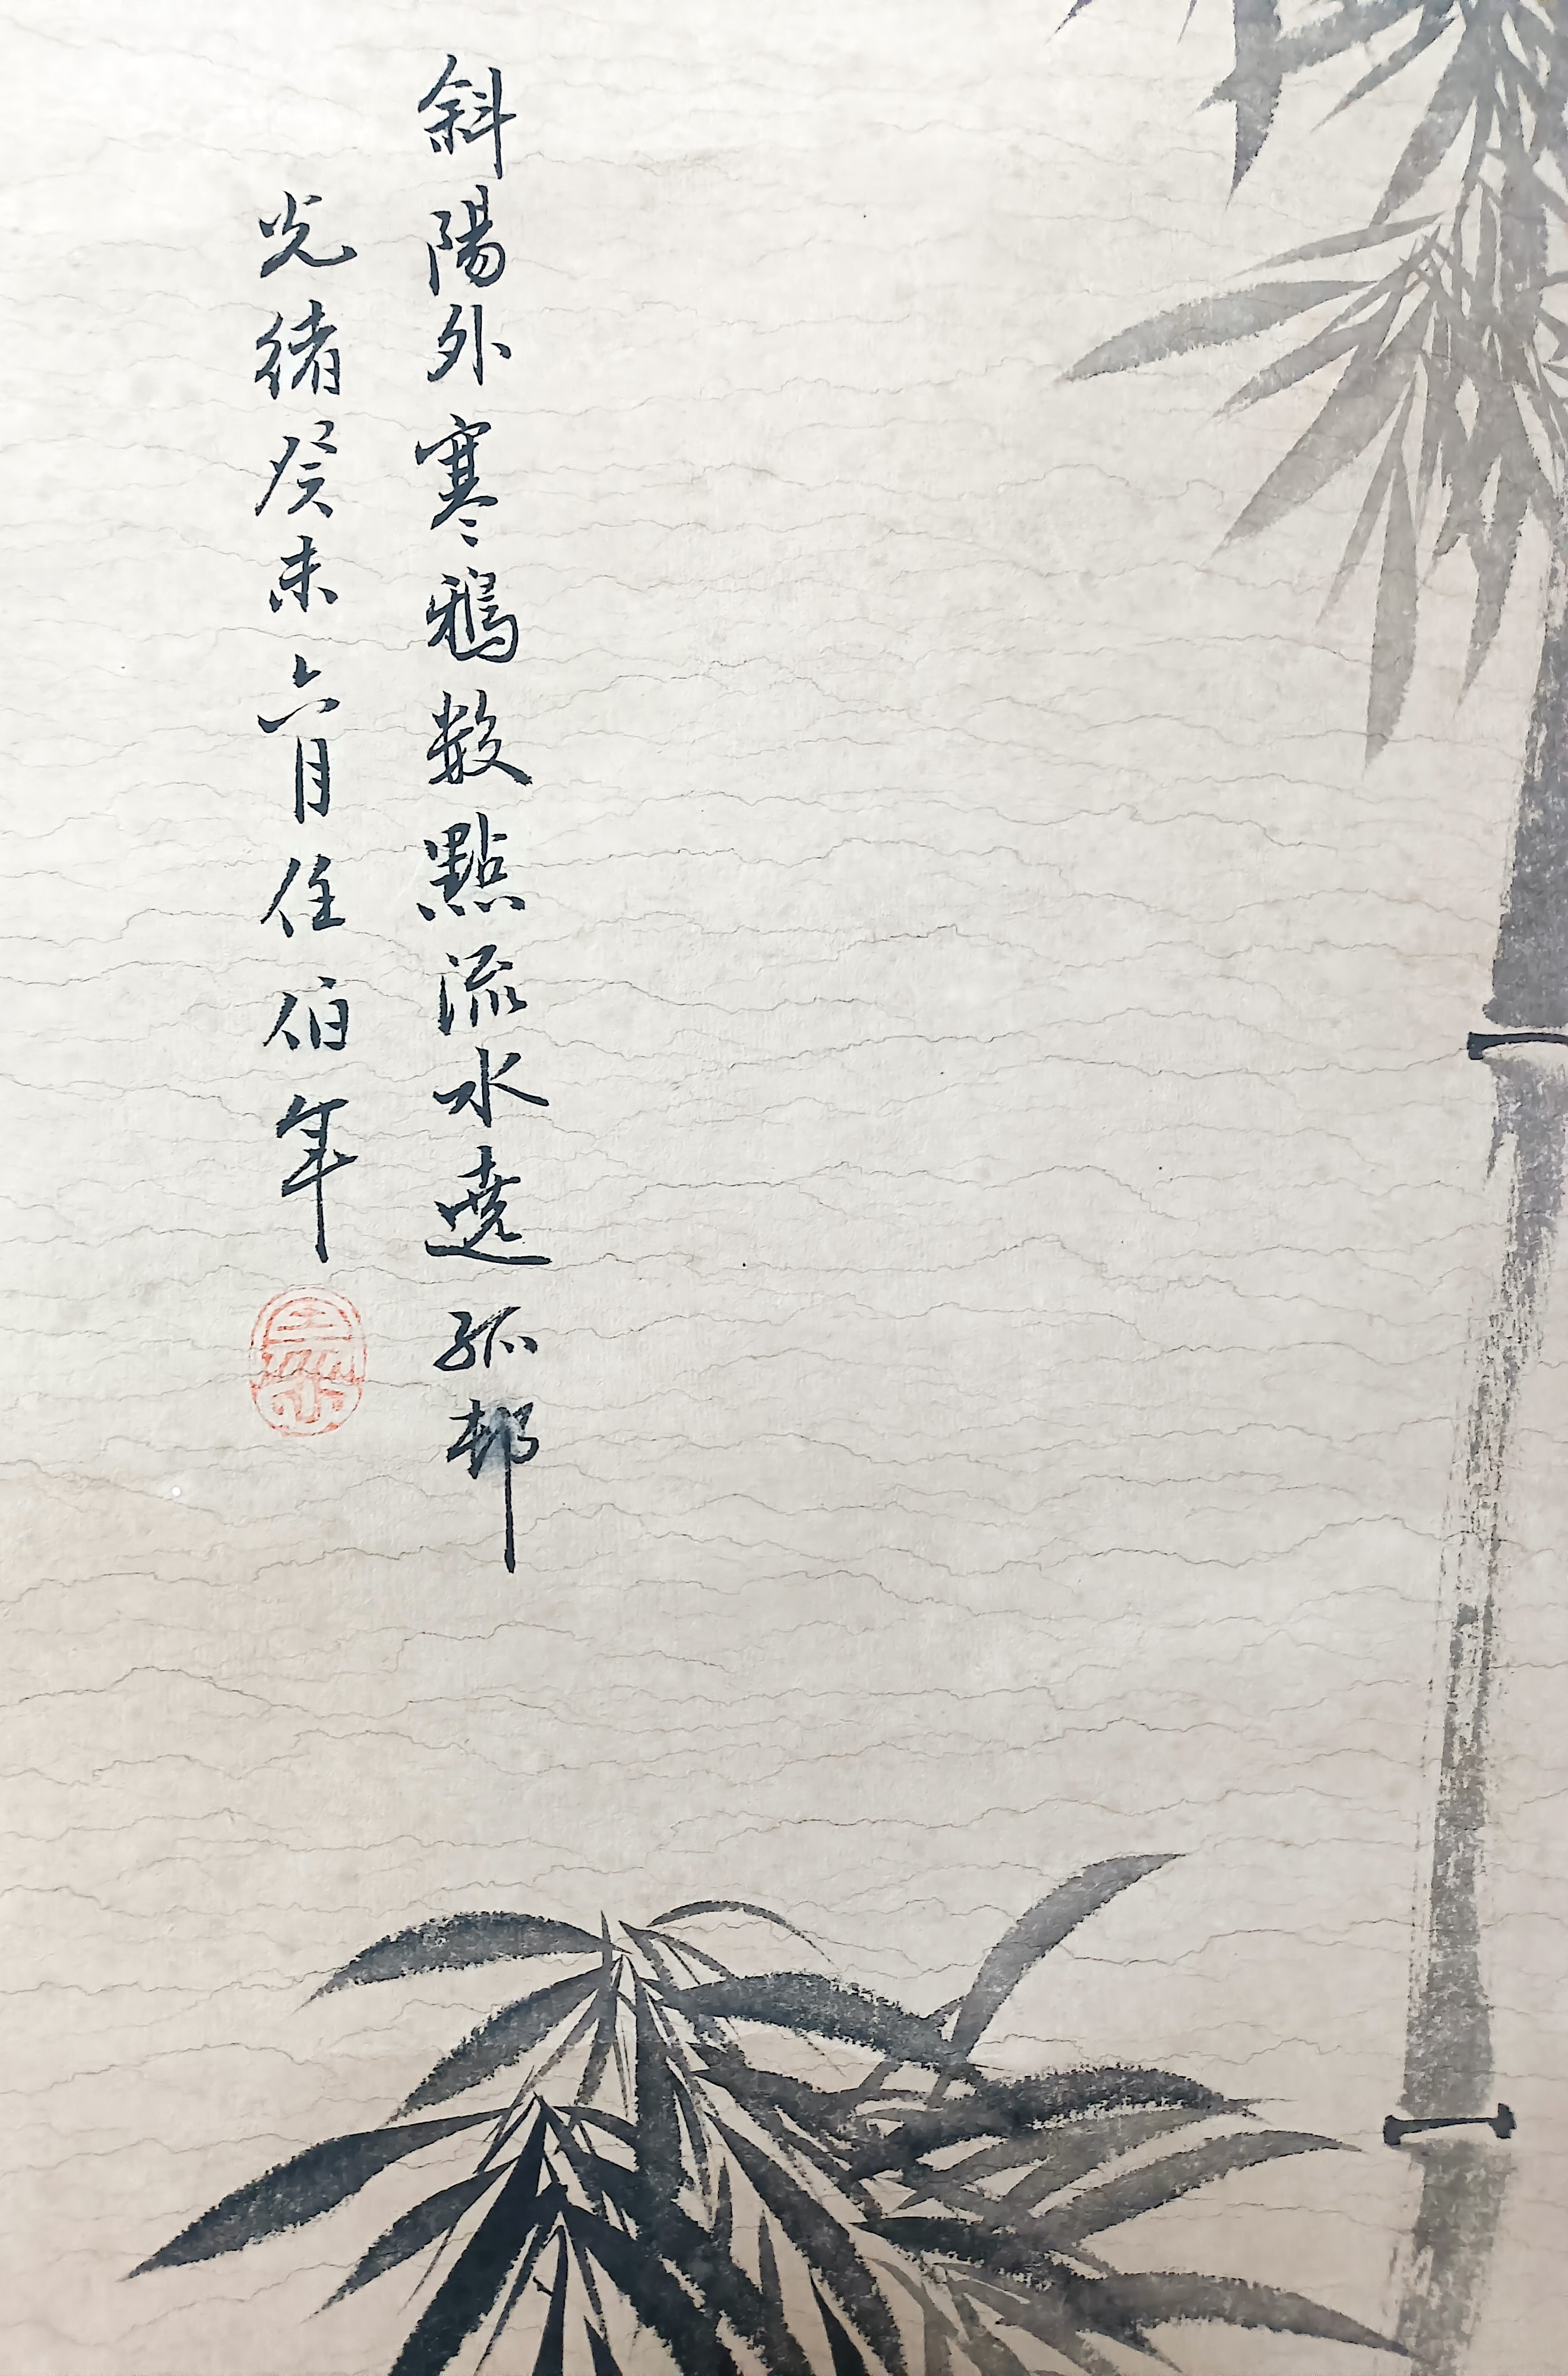 斜陽外寒鴉数點流水遶孤邨
光緒癸未六月任伯年